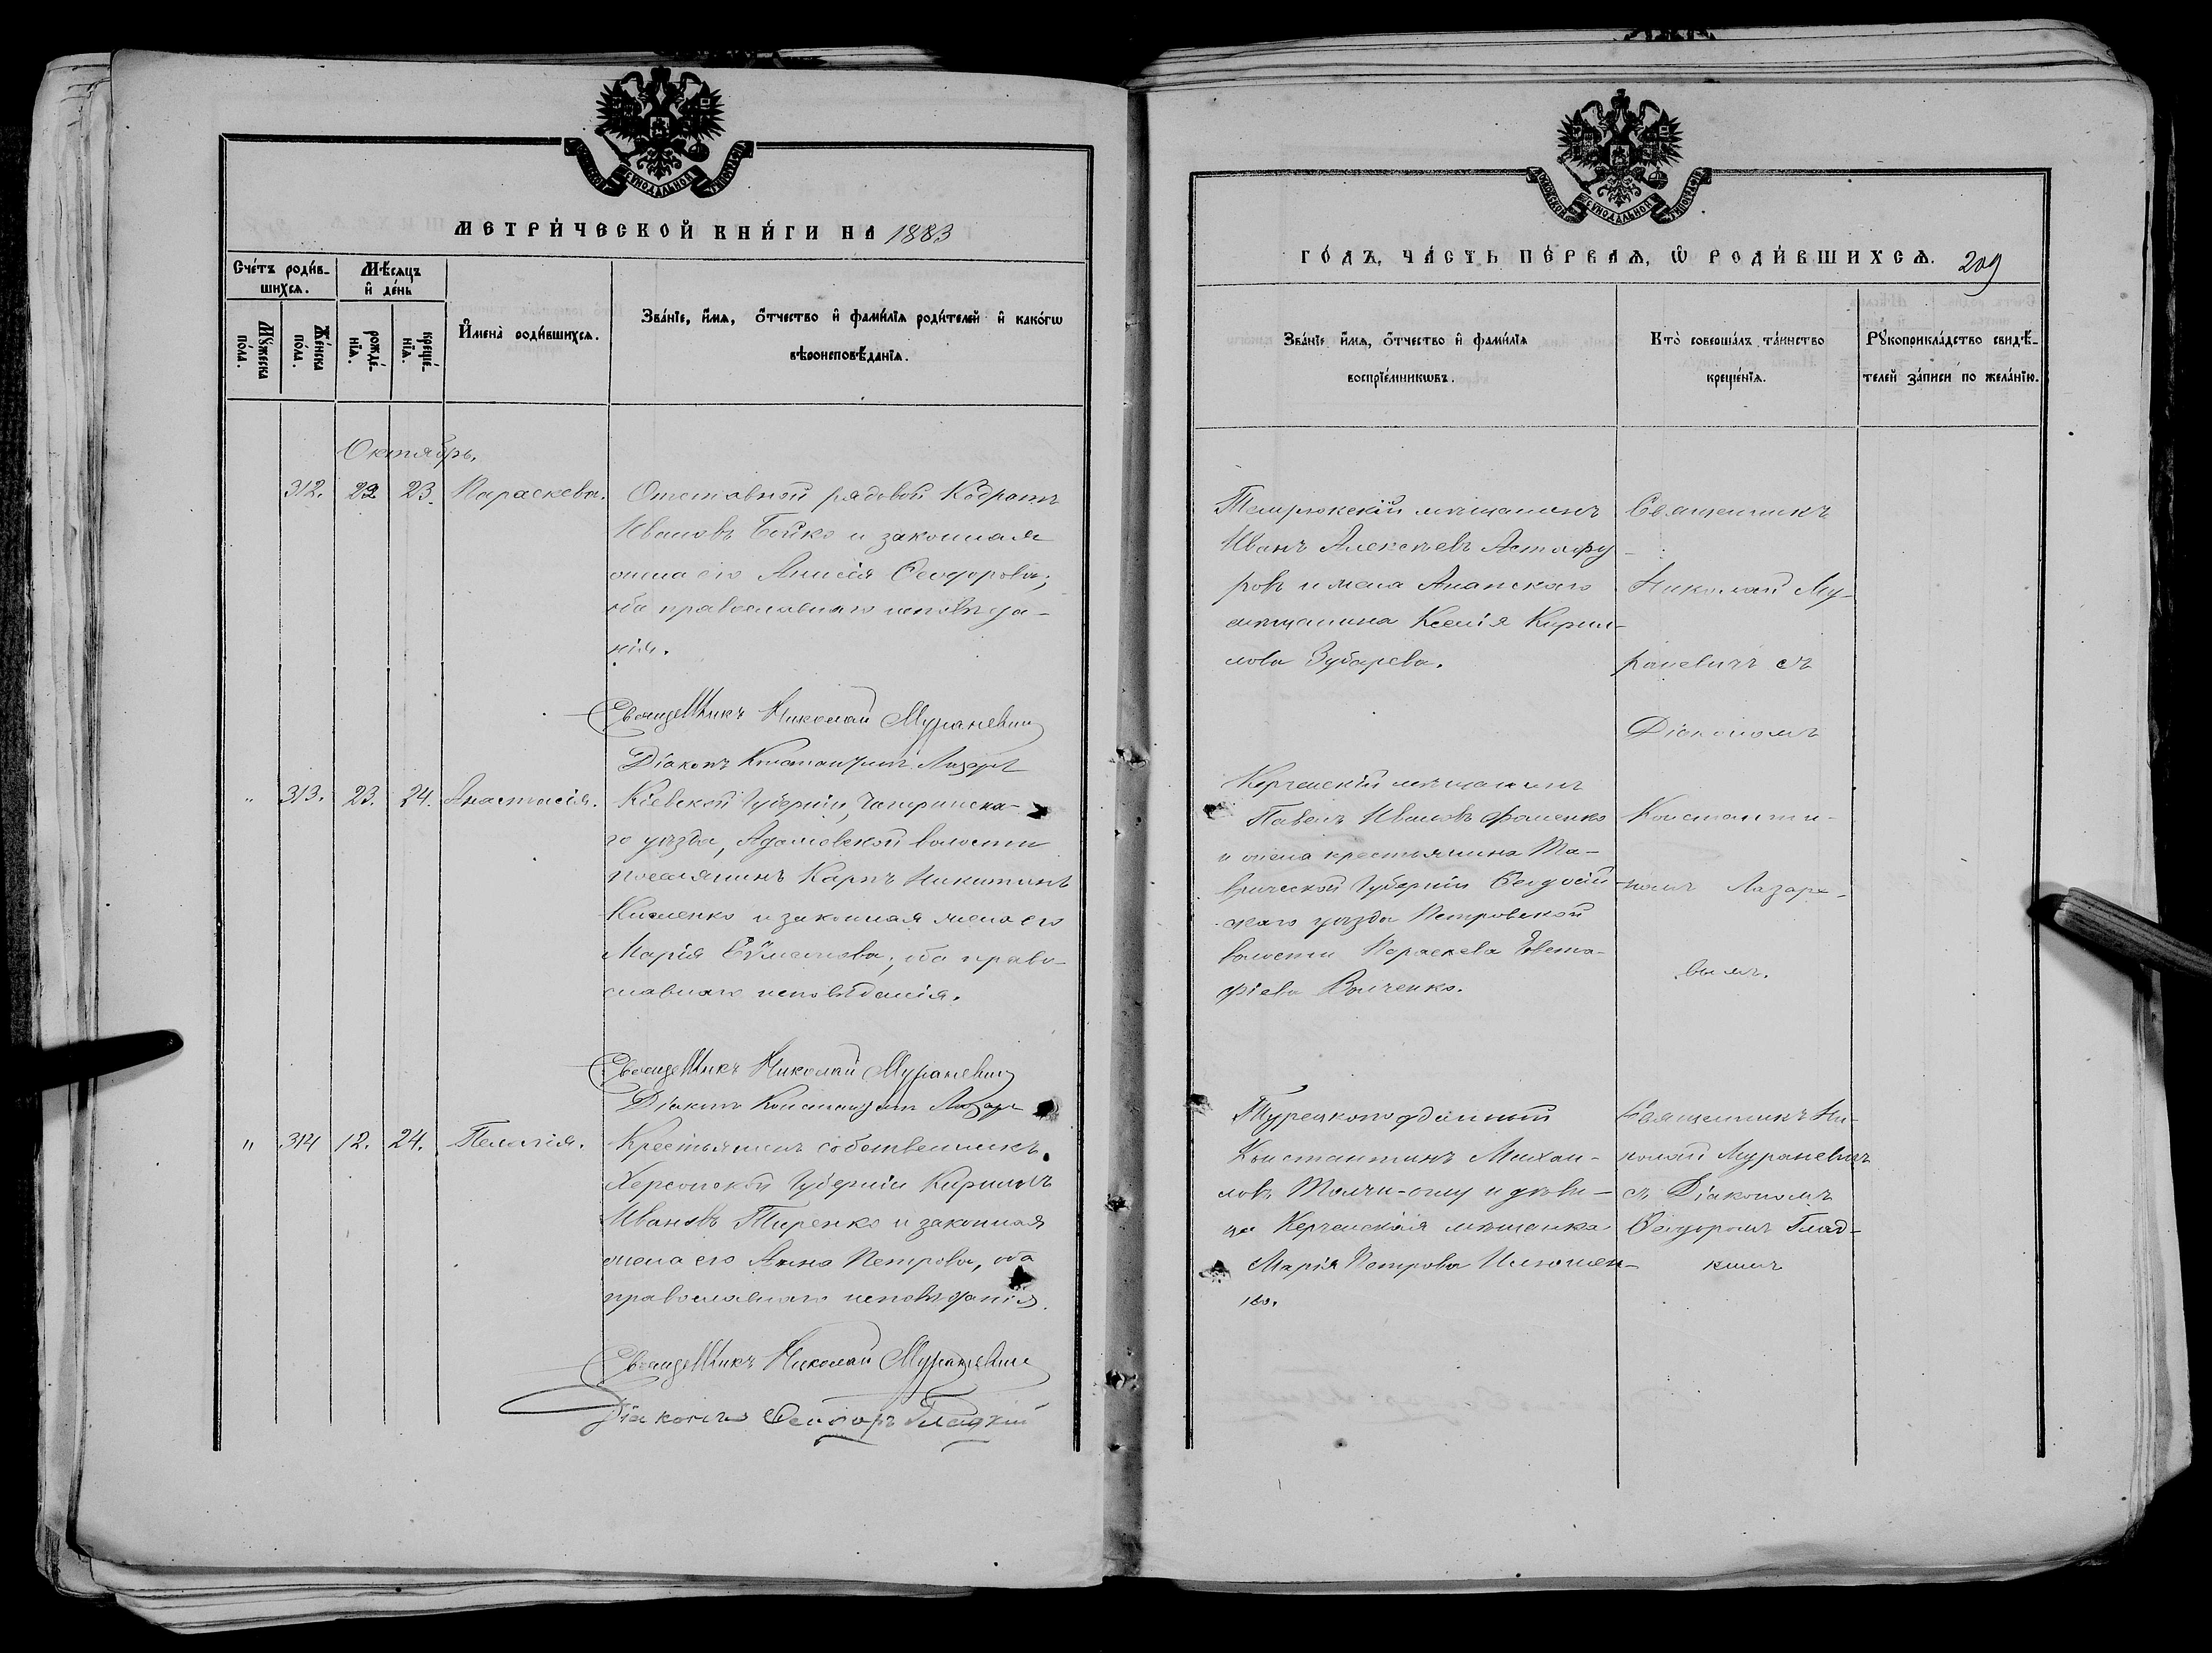 МЕТРИ́ЧЕСКОЙ КНИ́ГИ НА 1883
Сче́тъ роди́в-
шихсѧ.
Мѣ́сѧцъ
и҆ де́нь
Мꙋ́жеска
по́ла.
Же́нска
по́ла.
рожде́-
нїѧ.
креще́-
нїѧ.
И҆мена̀ роди́вшихсѧ.
Зва́нїе, и҆́мѧ, ѻ҆́тчество и҆ фами́лїѧ роди́телей и҆ како́гѡ
вѣроисповѣ́данїѧ.
Октябрь.
312. 22 23. Параскева.
Отставной рядовой Кодратъ
Ивановъ Бойко и законная
жена его Анисія Ѳеодорова;
оба православнаго исповѣда-
нія.
Священникъ Николай Мураневич
Діаконъ Константинъ Лазарв
„ 313. 23. 24. Анастасія.
Кіевской Губерніи, Чигиринска-
го уѣзда, Адамовской волости
поселянинъ Карпъ Никитинъ
Кисленко и законная жена его
Марія; оба право-
славнаго исповѣданія.
Священникъ Николай Мураневич
Діаконъ Константинъ Лазарв
„ 314 12. 24. Пелагія.
Крестьянинъ собственникъ
Херсонской Губерніи Кирилъ
Ивановъ Тиренко и законная
жена его Анна Петрова, оба
православнаго исповѣданія.
Священникъ Николай Мураневич
Діаконъ Ѳеодоръ Гладкій
ГО́ДЪ, ЧА́СТЬ ПЕ́РВАѦ, Ѡ҆ РОДИ́ВШИХСѦ. 209
Зва́нїе и҆́мѧ, ѻ҆́тчество и҆ фами́лїѧ
воспрїе́мникѡвъ.
Кто̀ соверша́лъ та́инство
креще́нїѧ.
Рꙋкоприкла́дство свидѣ́-
телей за́писи по жела́нїю.
Темрюкскій мѣщанинъ
Иванъ Алексѣевъ Астафу-
ровъ и жена Анапскаго
мѣщанина Ксенія Кирил-
лова Зубарева.
Священникъ
Николай Му-
раневичъ съ
Діакономъ
Константи-
номъ Лазаре-
вымъ.
Керченскій мѣщанинъ
Павелъ Ивановъ Фоменко
и жена крестьянина Та-
врической Губерніи Ѳеодосій-
скаго уѣзда Петровской
волости Параскева Евста-
фіева Волченко.
Турецкоподданный
Константинъ Михаи-
ловъ и дѣви-
ца Керченская мѣщанка
Марія Петрова Илюшен-
ко.
Священникъ Ни-
колай Мураневичъ
съ Діакономъ
Ѳеодоромъ Глад-
кимъ